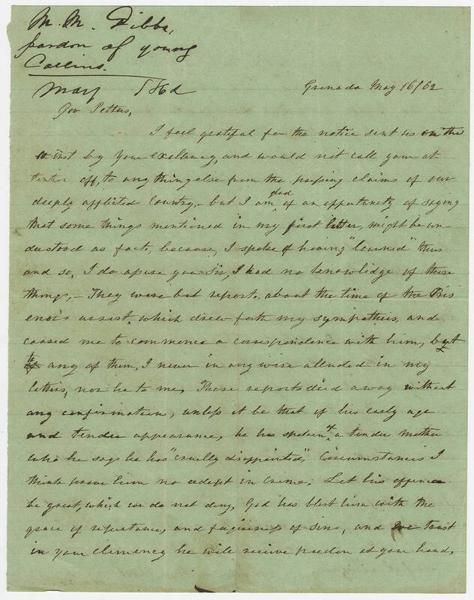 M. M. Dibbs,
pardon of young
Collins.
May
Grenada May 16/62
Gov Pettus,
I feel grateful for the notice sent us on the
inst by Your Excellency, and would not call your at
off, to any thing else from the pressing claims of our
deeply afflicted Country,- but I am glad of an oppertunity of saying
that some things mentioned in my first letter, might be un
derstood as fact, because, I spoke of having "learned" thus
and so. I do assure you Sir, I had no knowledge of these
things,- They were but report, about the time of the Pris
, which drew forth my sympathies, and
caused me to commence a correspondence with him, but
to any of them, I never in any wise alluded in my
letters, nor he to me, These reports died away without
any confirmation, unless it be that of his early age
and tender appearance, he has spoken of a tender mother
who he says he has "cruelly disappointed". Circumstances I
think prove him no adept in crime. Let his offence
be great, which we do not deny, God has blest him with the
grace of repentance, and forgiveness of sins, and we trust
in your clemency he will receive freedom at your hand,